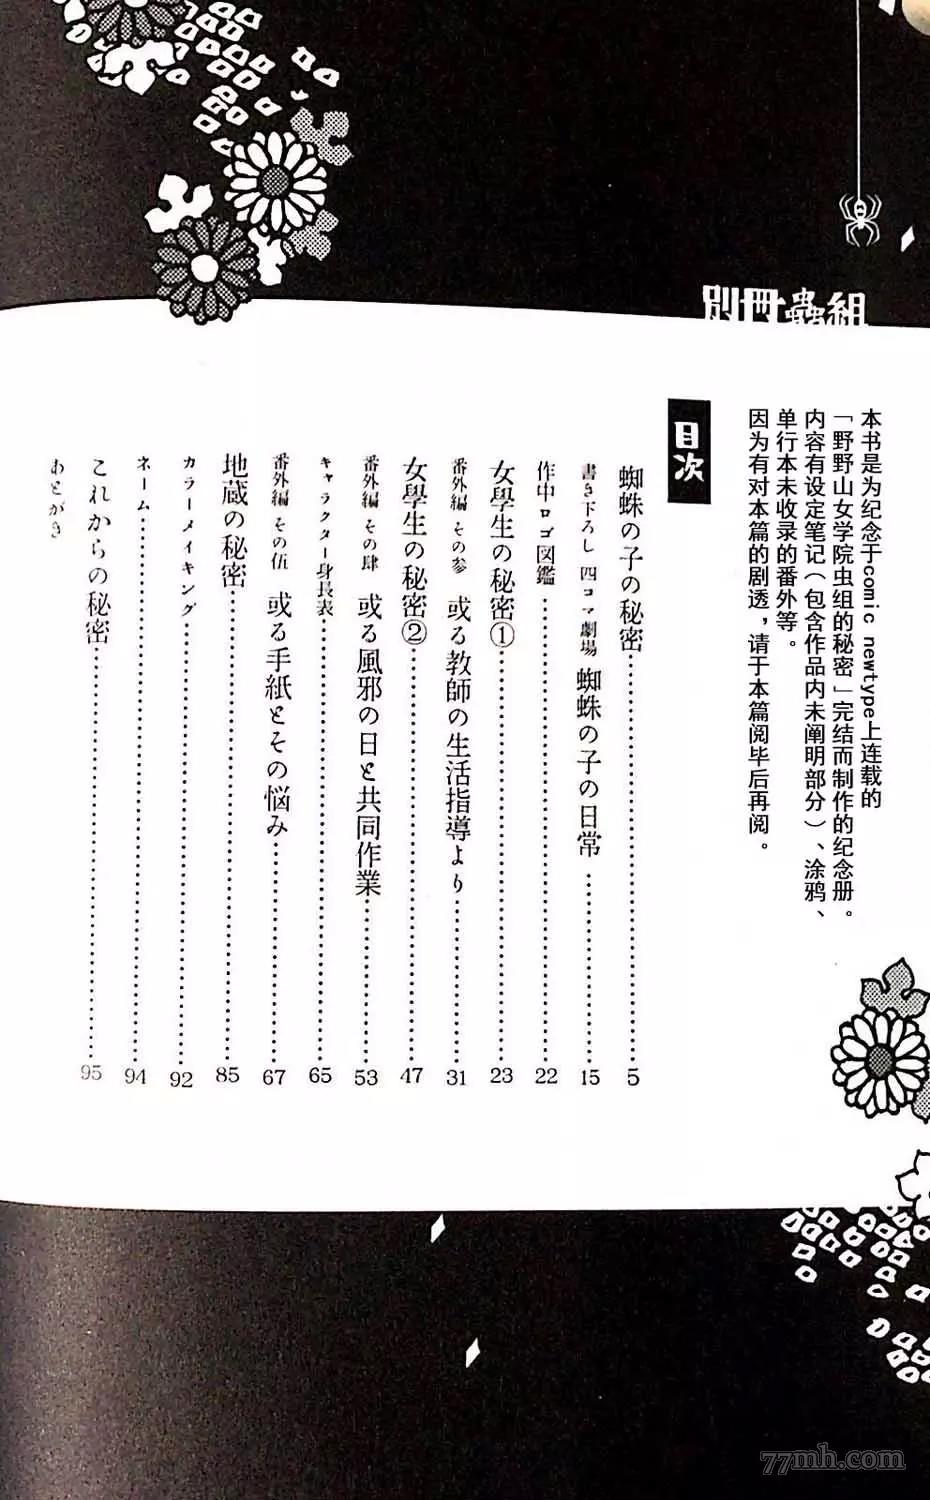 別冊蟲組
本书是为纪念于comic newtype上连载的
「野野山女学院虫组的秘密」完结而制作的纪念册。
内容有设定笔记(包含作品内未阐明部分)、涂鸦、
单行本未收录的番外等。
因为有对本篇的剧透,请于本篇阅毕后再阅。
目次
蜘蛛の子の秘密……5
書き下ろし 四コマ劇場 蜘蛛の子の日常……15
作中ロゴ図鑑……22
女學生の秘密①……23
番外編 その参 或る教師の生活指導より……31
女學生の秘密②……47
番外編 その肆 或る風邪の日と共同作業……53
キャラクター身長表……65
番外編 その伍 或る手紙とその悩み……67
地蔵の秘密……85
カラーメイキング……92
ネーム……94
これからの秘密……95
あとがき
77mh.com